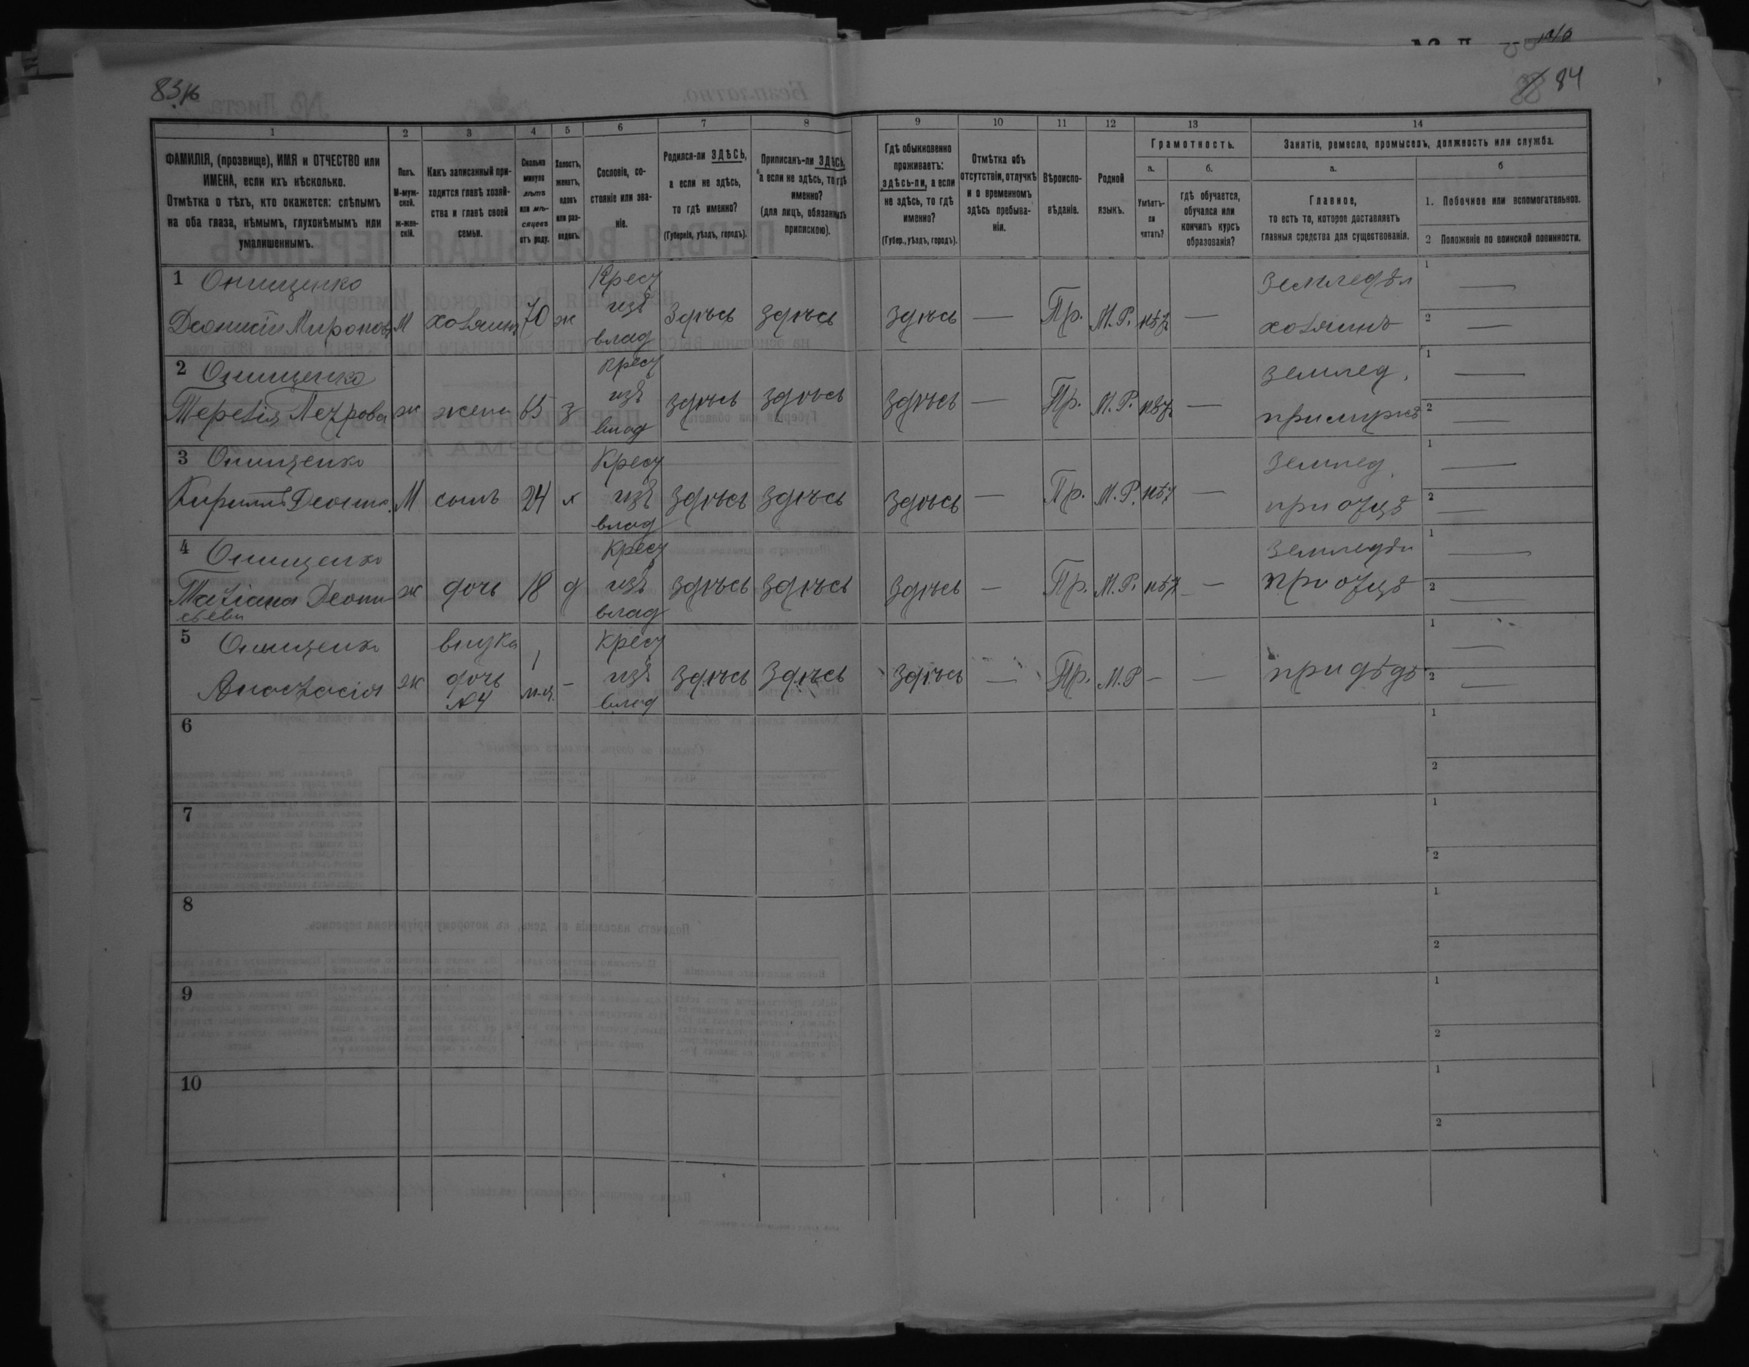 83 об
84
1 2 3 4 5 6 7 8 9 10 11 12 13 14
ФАМИЛІЯ, (прозвище), ИМЯ и ОТЧЕСТВО или ИМЕНА, если ихъ нѣсколько.
Отмѣтка о тѣхъ, кто окажется: слѣпымъ на оба глаза, нѣмымъ, глухонѣмымъ или умалишеннымъ.
Полъ.
М-мужской.
ж-женскій.
Какъ записанный приходится главѣ хозяйства и главѣ своей семьи.
Сколько минуло лѣтъ или мѣсяцевъ отъ роду.
Холостъ, женатъ, вдовъ или разведенъ.
Сословіе, состояніе или званіе.
Родился-ли ЗДѢСЬ, а если не здѣсь, то гдѣ именно?
(Губернія, уѣздъ, городъ).
Приписанъ-ли ЗДѢСЬ, а если не здѣсь, то гдѣ именно?
(для лицъ, обязанныхъ припискою).
Гдѣ обыкновенно проживаетъ: здѣсь-ли, а если не здѣсь, то гдѣ именно?
(Губер., уѣздъ, городъ).
Отмѣтка объ отсутствіи, отлучкѣ и о временномъ здѣсь пребываніи.
Вѣроисповѣданіе.
Родной языкъ.
Грамотность.
а.
Умѣетъ-ли читать?
б.
гдѣ обучается, обучался или кончилъ курсъ образованія?
Занятія, ремесло, промыселъ, должность или служба.
а.
Главное,
то есть то, которое доставляетъ главныя средства для существованія.
б
1. Побочное или вспомогательное.
2 Положеніе по воинской повинности.
1 Онищенко
Деонисій Миронов М хозяинъ 70 ж Крест изъ влад Здѣсь здѣсь здѣсь — Пр. М.Р. нѣт — земледѣл хозяинъ 1 — 2 —
2 Онищенко
Терезія Петрова ж жена 65 з крест изъ влад здѣсь здѣсь здѣсь — Пр. М.Р. нѣт — землед. 1 — 2 —
3 Онищенко
Кириллъ Деонис. М сынъ 24 х Крест изъ влад здѣсь здѣсь здѣсь — Пр. М.Р. нѣт — землед. при отцѣ 1 — 2 —
4 Онищенко
Татіана Деони
сьева ж дочь 18 д Крест изъ влад здѣсь здѣсь здѣсь — Пр. М.Р. нѣт — земледѣл при отцѣ 1 — 2 —
5 Онищенко
Анастасія ж внука дочь №4 1 м-ц. — крест изъ влад здѣсь здѣсь здѣсь — Пр. М.Р — — при дѣдѣ 1 — 2 —
6 1 2
7 1 2
8 1 2
9 1 2
10 1 2